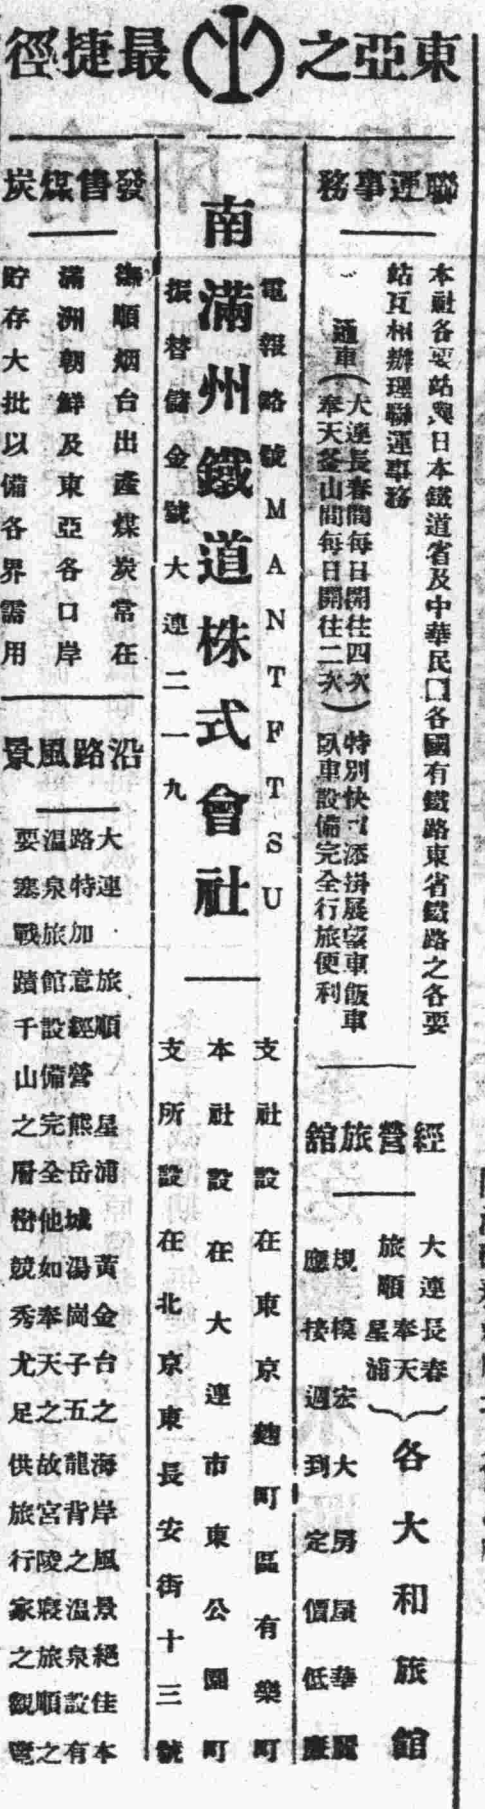 東亞之最捷徑
聯運事務
本社各要站與日本鐵道省及中華民國各國有鐵路東省鐵路之各要
站互相辦理聯運事務
通車(大連長春間每日開往四次
奉天釜山間每日開往二次)
特別快車添掛展望車飯車
臥車設備完全行旅便利
經營旅館
大連長春
旅順奉天
星浦
各大和旅館
規模宏大房屋華麗
應接週到定價低廉
電報略號MANTFTSU
南滿州鐵道株式會社
振替儲金號大連二一九
支社設在東京麴町區有樂町
本社設在大連市東公園町
支所設在北京東長安街十三號
發售煤炭
撫順烟台出產煤炭常在
滿洲朝鮮及東亞各口岸
貯存大批以備各界需用
沿路風景
大連旅順星浦黃金台之海岸風景絕佳本
路特加意經營熊岳城湯崗子五龍背之溫泉設有
溫泉旅館設備完全他如奉天之故宮陵寢旅順之
要塞戰蹟千山之廟樹競秀尤足供旅行家之觀覽